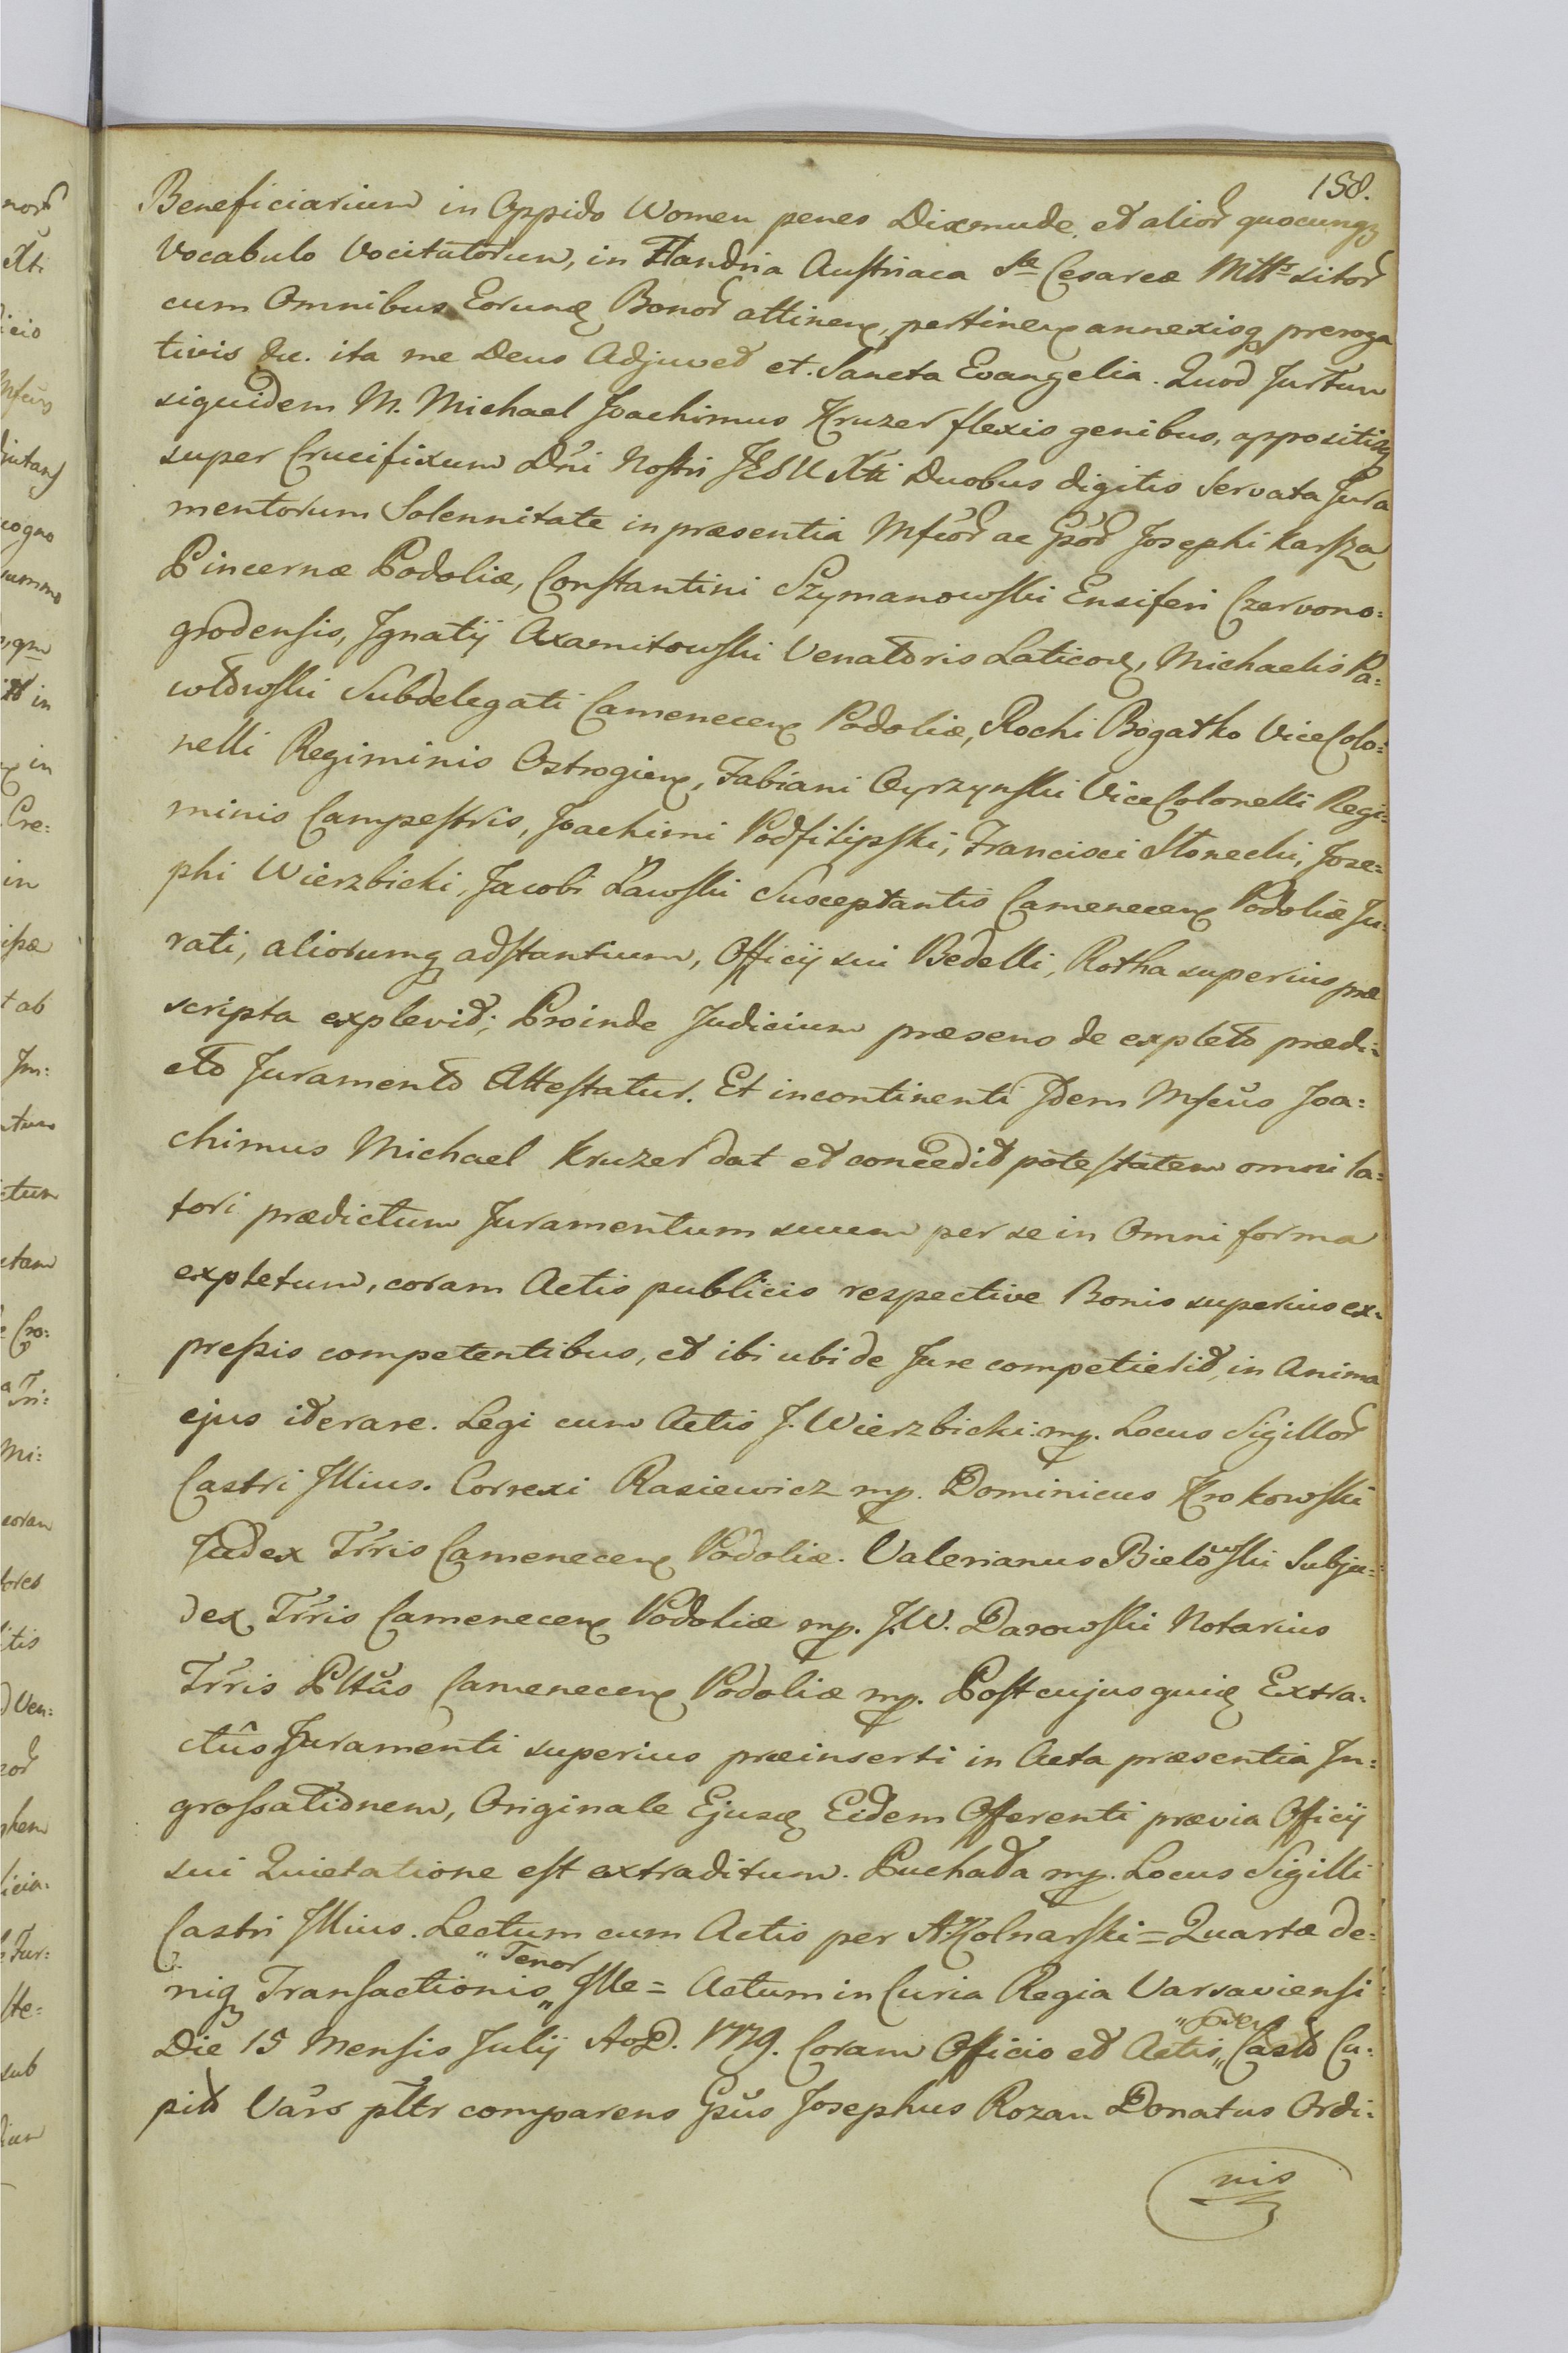 158.
Beneficiarium in Oppido Women penes Dixmude, et alior̃ quocunqꝫ
Vocabulo Vocitatorum, in Flandria Austriaca Sæ Cesareæ Mttis sitor̃
cum Omnibus Eorunđ Bonor̃ attineñ, pertineñ annexisqꝫ preroga
tivis &c. ita me Deus Adjuvet et Sancta Evangelia. Quod Jurtum
siquidem M. Michael Joachimus Kruzer flexis genibus, appositisqꝫ
super Crucifixum Dn̄i Nostri JESU Xti Duobus digitis Servata Jura
mentorum Solennitate in præsentia Mfcor̃ ac Gsor̃ Josephi Karsza
Pincernæ Podoliæ, Constantini Szymanowski Ensiferi Czervono:
grodensis, Ignatij Axamitowski Venatoris Laticoñ, Michaelis Pa:
włowski Subdelegati Cameneceñ Podoliæ, Rochi Bogatko ViceColo:
nelli Regiminis Ostrogieñ, Fabiani Oyrzynski ViceColonelli Regi:
minis Campestris, Joachimi Podfilipski, Francisci Słonecki, Jose:
phi Wierzbicki, Jacobi Ławski Susceptantis Cameneceñ Podoliæ Ju:
rati, aliorumqꝫ adstantium, Officij sui Bedelli, Rotha superius præ
scripta explevit; Proinde Judicium præsens de expleto prædi:
cto Juramento Attestatur. Et incontinenti Idem Mfcus Joa:
chimus Michael Kruzer dat et concedit potestatem omni la:
tori prædictum Juramentum suum per se in Omni forma
expletum, coram Actis publicis respective Bonis superius ex:
pressis competentibus, et ibi ubi de Jure competierit, in Anima
ejus iterare. Legi cum Actis J. Wierzbicki mp. Locus Sigillor̃
Castri Illius. Correxi Rasiewicz mp. Dominicus Krokowski
Judex Tr̃ris Cameneceñ Podoliæ. Valerianus Bielowski Subju:
dex Tr̃ris Cameneceñ Podoliæ mp. J.W. Darowski Notarius
Tr̃ris Pltus Cameneceñ Podoliæ mp. Post cujus quiđ Extra:
ctûs Juramenti superius præinserti in Acta præsentia In:
grossationem, Originale Ejusđ Eidem Offerenti prævia Officij
sui Quietatione est extraditum. Puchała mp. Locus Sigilli
Castri Illius. Lectum cum Actis per A. Kolnarski = Quartæ de:
niqꝫ Transactionis „ "Tenor Ille = Actum in Curia Regia Varsaviensi
Die 15 Mensis Julij AoD. 1779. Coram Officio et Actis „ Casto Ca:
pits Vars pltr comparens Gsus Josephus Rozan Donatus Ordi:
nis